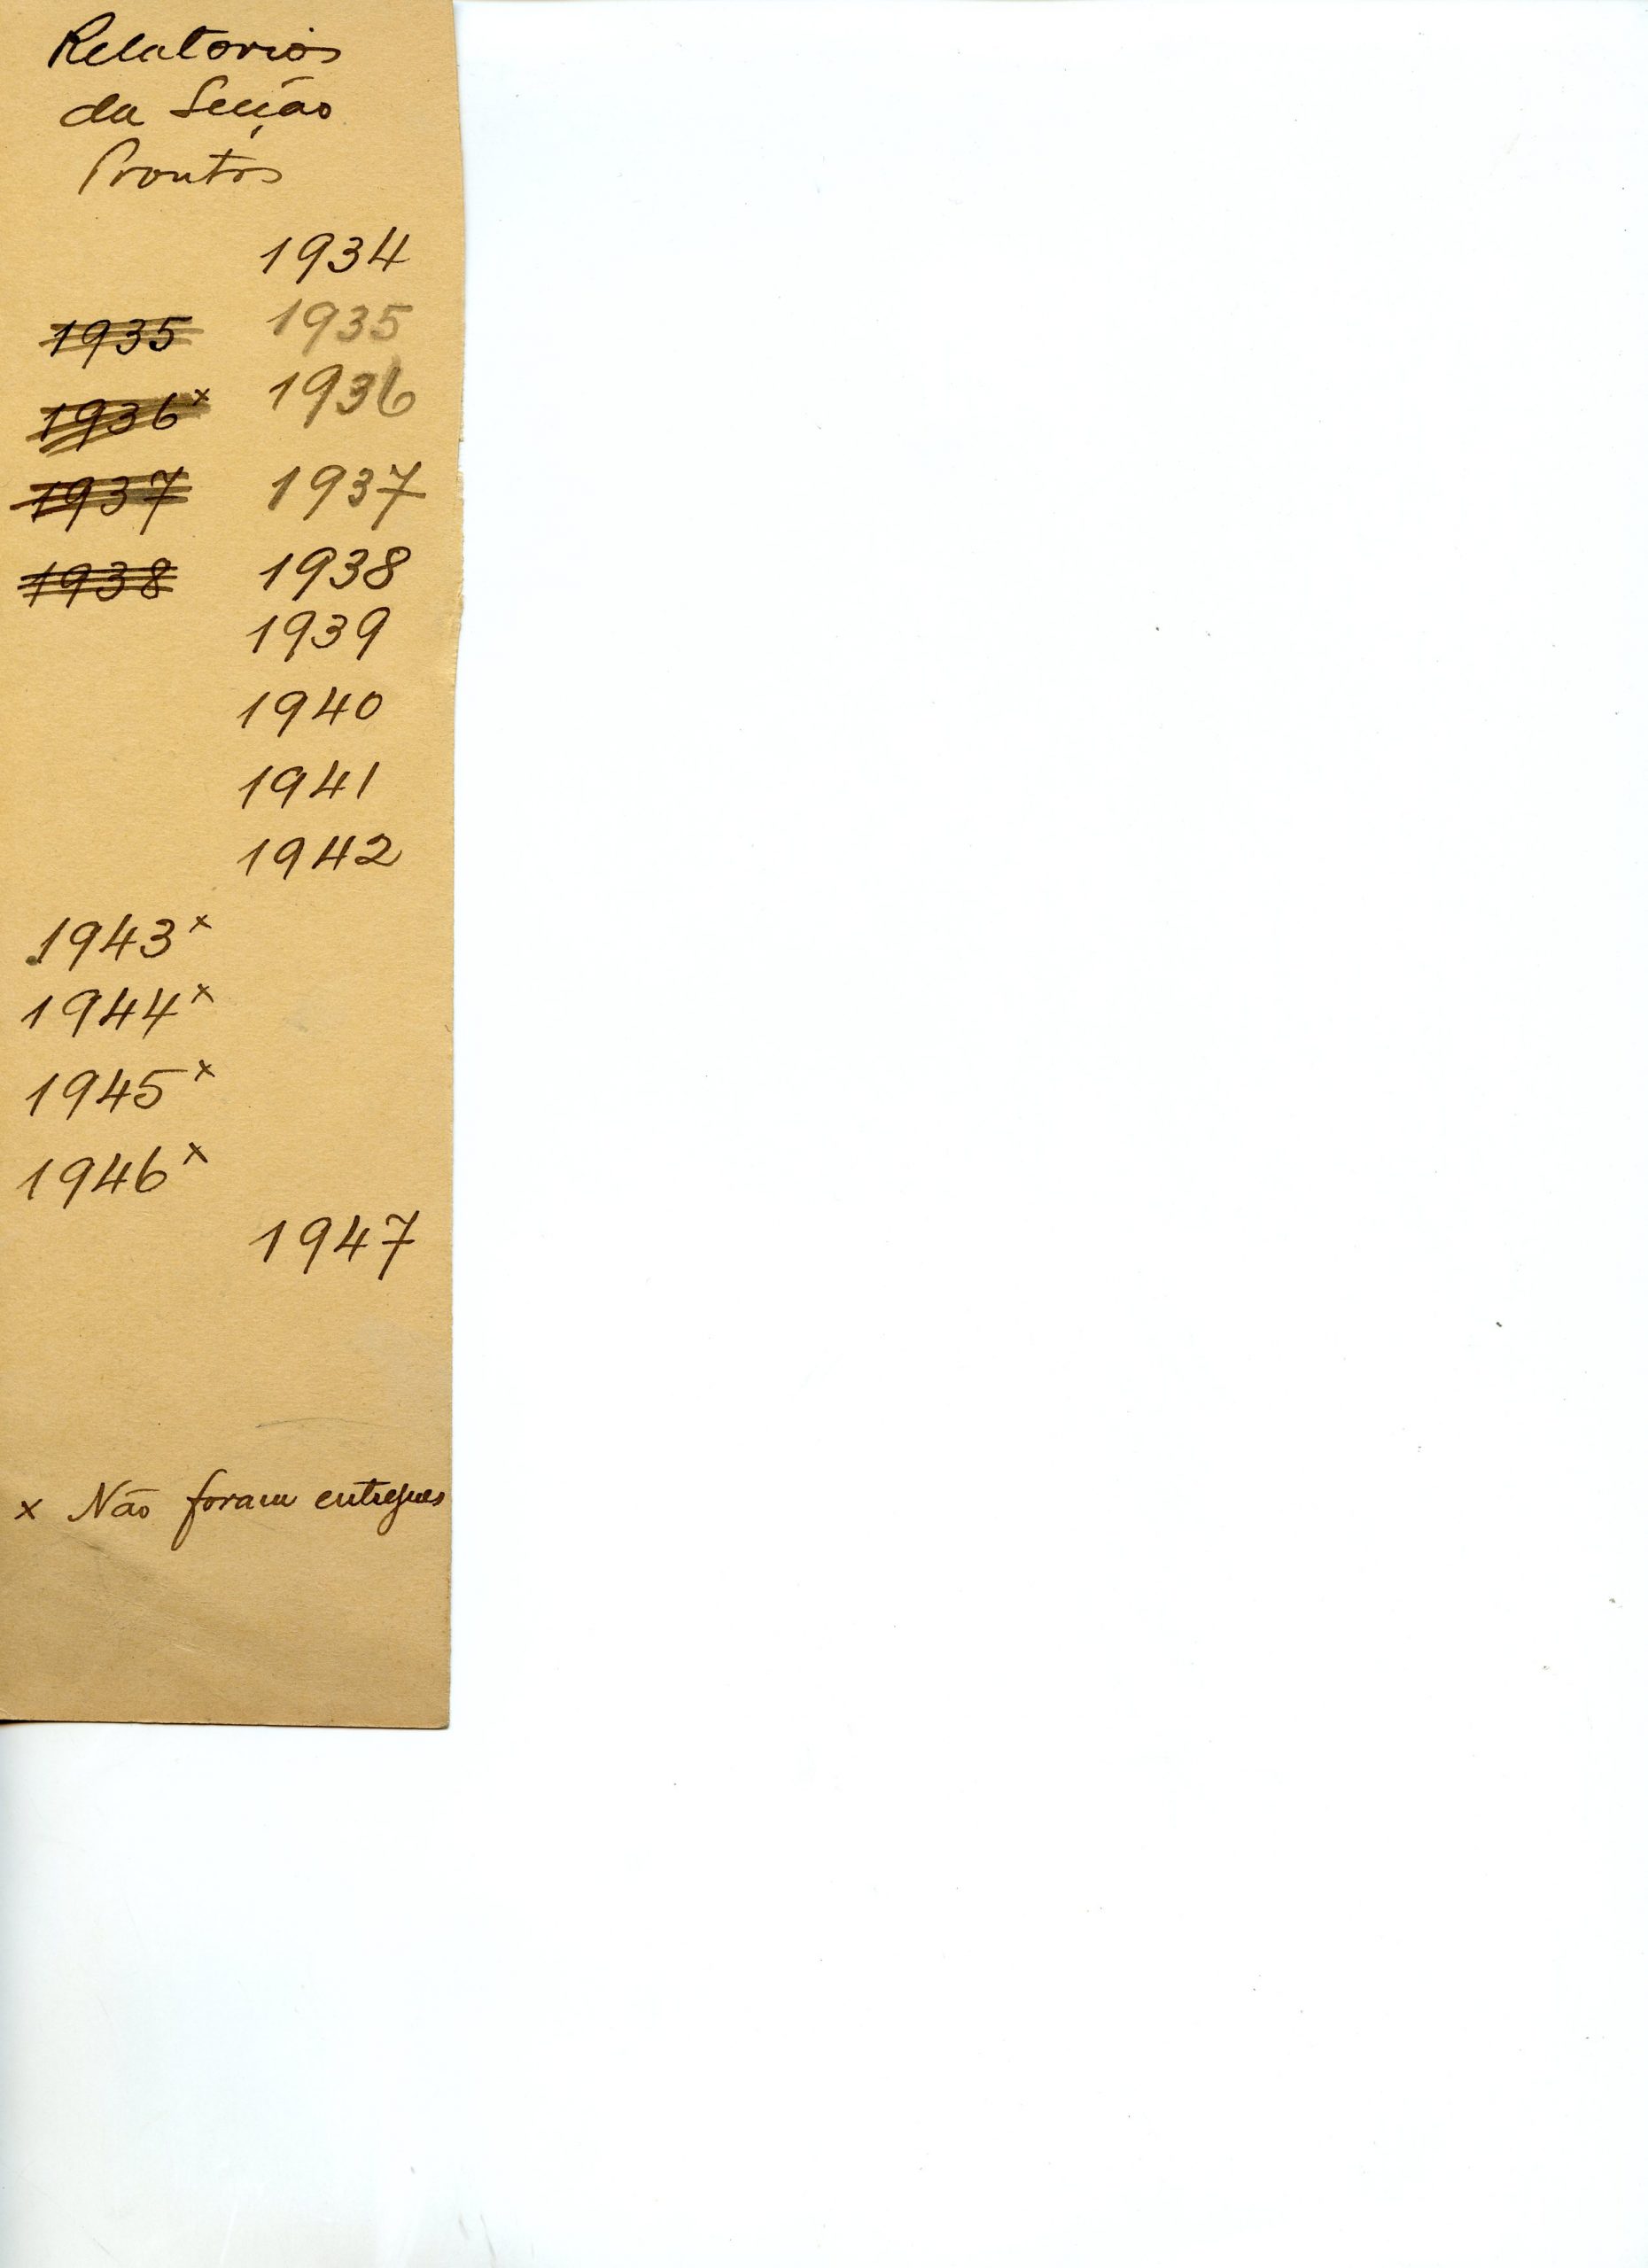 Relatorios
da Secção
Prontos
1934
1935 1935
1936x 1936
1937 1937
1938 1938
1939
1940
1941
1942
1943x
1944x
1945x
1946x
1947
x Não foram entregues